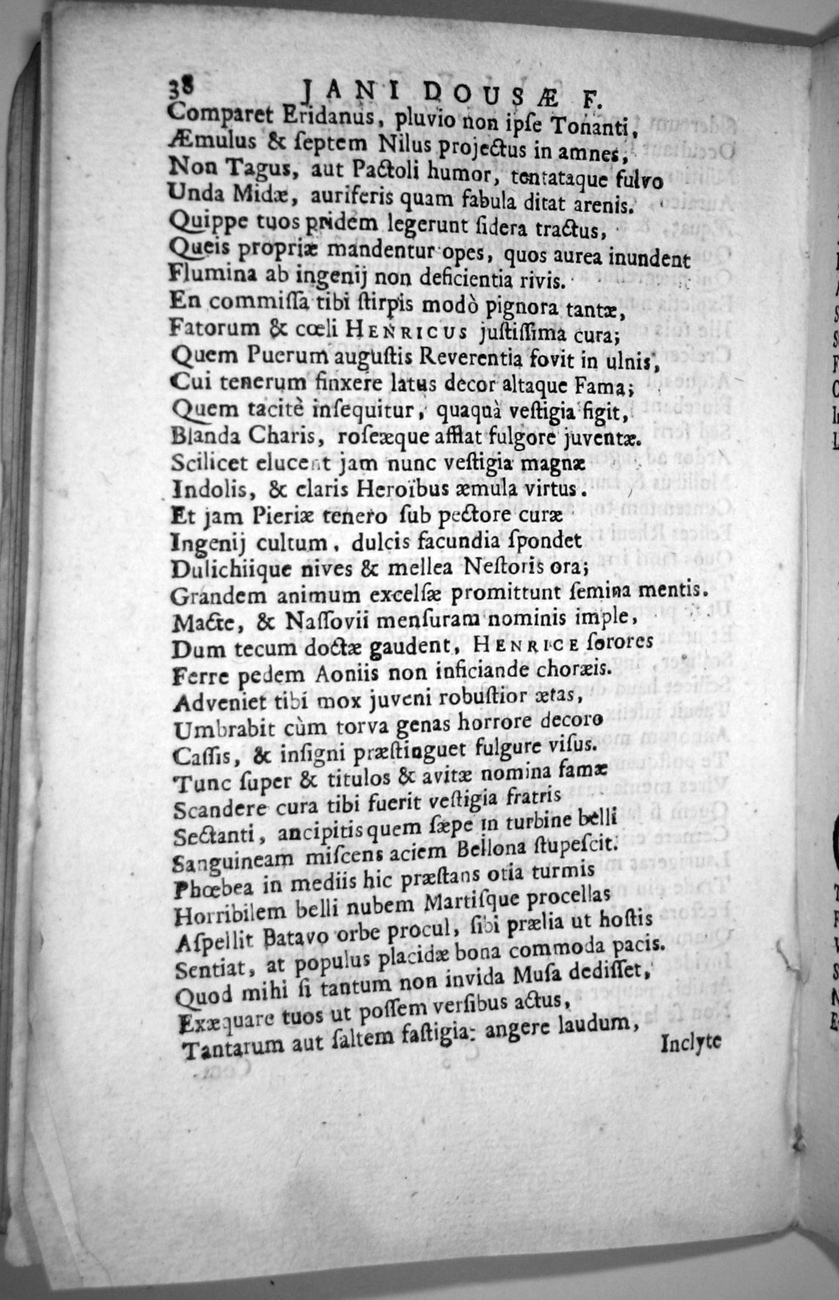 38 JANI DOUSÆ F.
Comparet Eridanus, pluvio non ipſe Tonanti,
Æmulus & ſeptem Nilus projectus in amnes,
Non Tagus, aut Pactoli humor, tentataque fulvo
Unda Midæ, auriferis quam fabula ditat arenis.
Quippe tuos pridem legerunt ſidera tractus,
Queis propriæ mandentur opes, quos aurea inundent
Flumina ab ingenij non deficientia rivis.
En commiſſa tibi ſtirpis modò pignora tantæ,
Fatorum & cœli HENRICUS juſtiſſima cura;
Quem Puerum auguſtis Reverentia fovit in ulnis,
Cui tenerum finxere latus decor altaque Fama;
Quem tacitè inſequitur, quaquà veſtigia figit,
Blanda Charis, roſeæque afflat fulgore juventæ.
Scilicet elucent jam nunc veſtigia magnæ
Indolis, & claris Heroïbus æmula virtus.
Et jam Pieriæ tenero ſub pectore curæ
Ingenij cultum, dulcis facundia ſpondet
Dulichiique nives & mellea Neſtoris ora;
Grandem animum excelſæ promittunt ſemina mentis.
Macte, & Naſſovii menſuram nominis imple,
Dum tecum doctæ gaudent, HENRICE ſorores
Ferre pedem Aoniis non inficiande choræis.
Adveniet tibi mox juveni robuſtior ætas,
Umbrabit cùm torva genas horrore decoro
Caſſis, & inſigni præſtinguet fulgure viſus.
Tunc ſuper & titulos & avitæ nomina famæ
Scandere cura tibi fuerit veſtigia fratris
Sectanti, ancipitis quem ſæpe in turbine belli
Sanguineam miſcens aciem Bellona ſtupeſcit.
Phœbea in mediis hic præſtans otia turmis
Horribilem belli nubem Martiſque procellas
Aſpellit Batavo orbe procul, ſibi prælia ut hoſtis
Sentiat, at populus placidæ bona commoda pacis.
Quod mihi ſi tantum non invida Muſa dediſſet,
Exæquare tuos ut poſſem verſibus actus,
Tantarum aut ſaltem faſtigia: angere laudum,
Inclyte